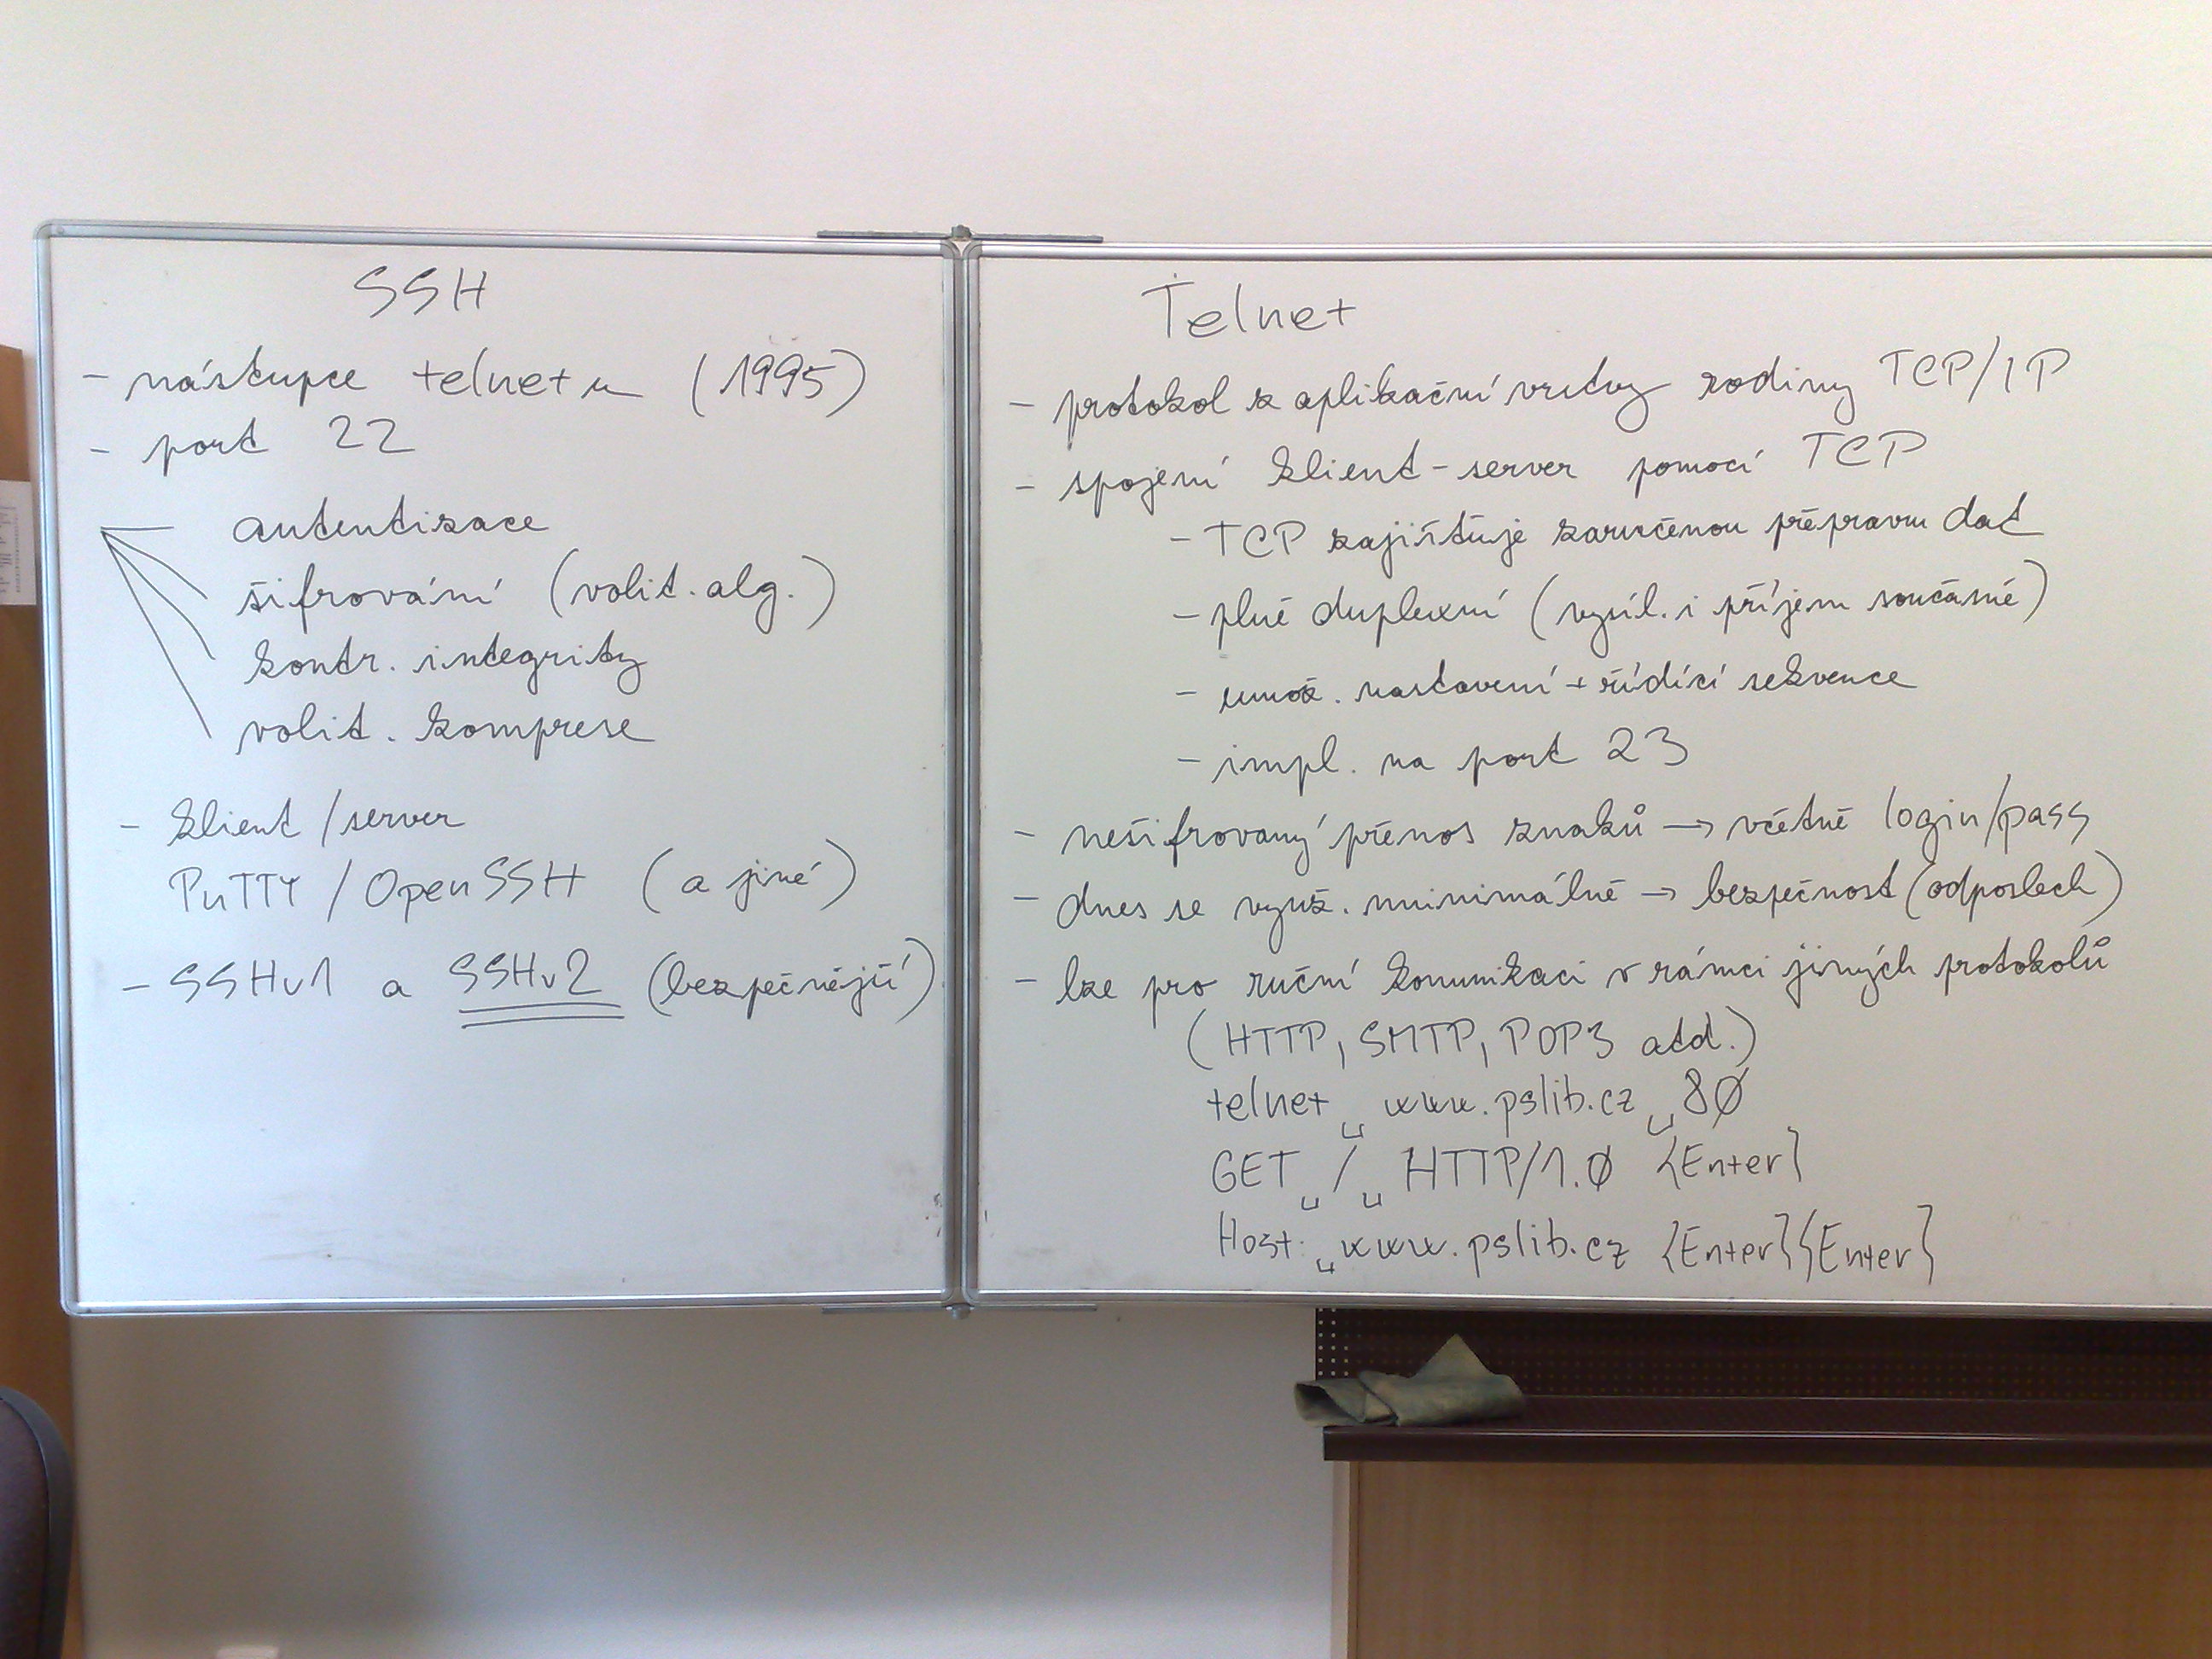 SSH
- nástupce telnetu (1995)
- port 22
autentizace
šifrování (volit. alg.)
kontr. integrity
volit. komprese
- klient / server
PuTTY / OpenSSH (a jiné)
- SSHv1 a SSHv2 (bezpečnější)
Telnet
- protokol z aplikační vrstvy rodiny TCP/IP
- spojení klient-server pomocí TCP
- TCP zajišťuje zaručenou přepravu dat
- plně duplexní (vysíl. i příjem současně)
- umož. nastavení + řídící sekvence
- impl. na port 23
- nešifrovaný přenos znaků → včetně login/pass
- dnes se využ. minimálně → bezpečnost (odposlech)
- lze pro ruční komunikaci v rámci jiných protokolů
(HTTP, SMTP, POP3 atd.)
telnet␣www.pslib.cz␣80
GET␣/␣HTTP/1.0 {Enter}
Host:␣www.pslib.cz {Enter}{Enter}